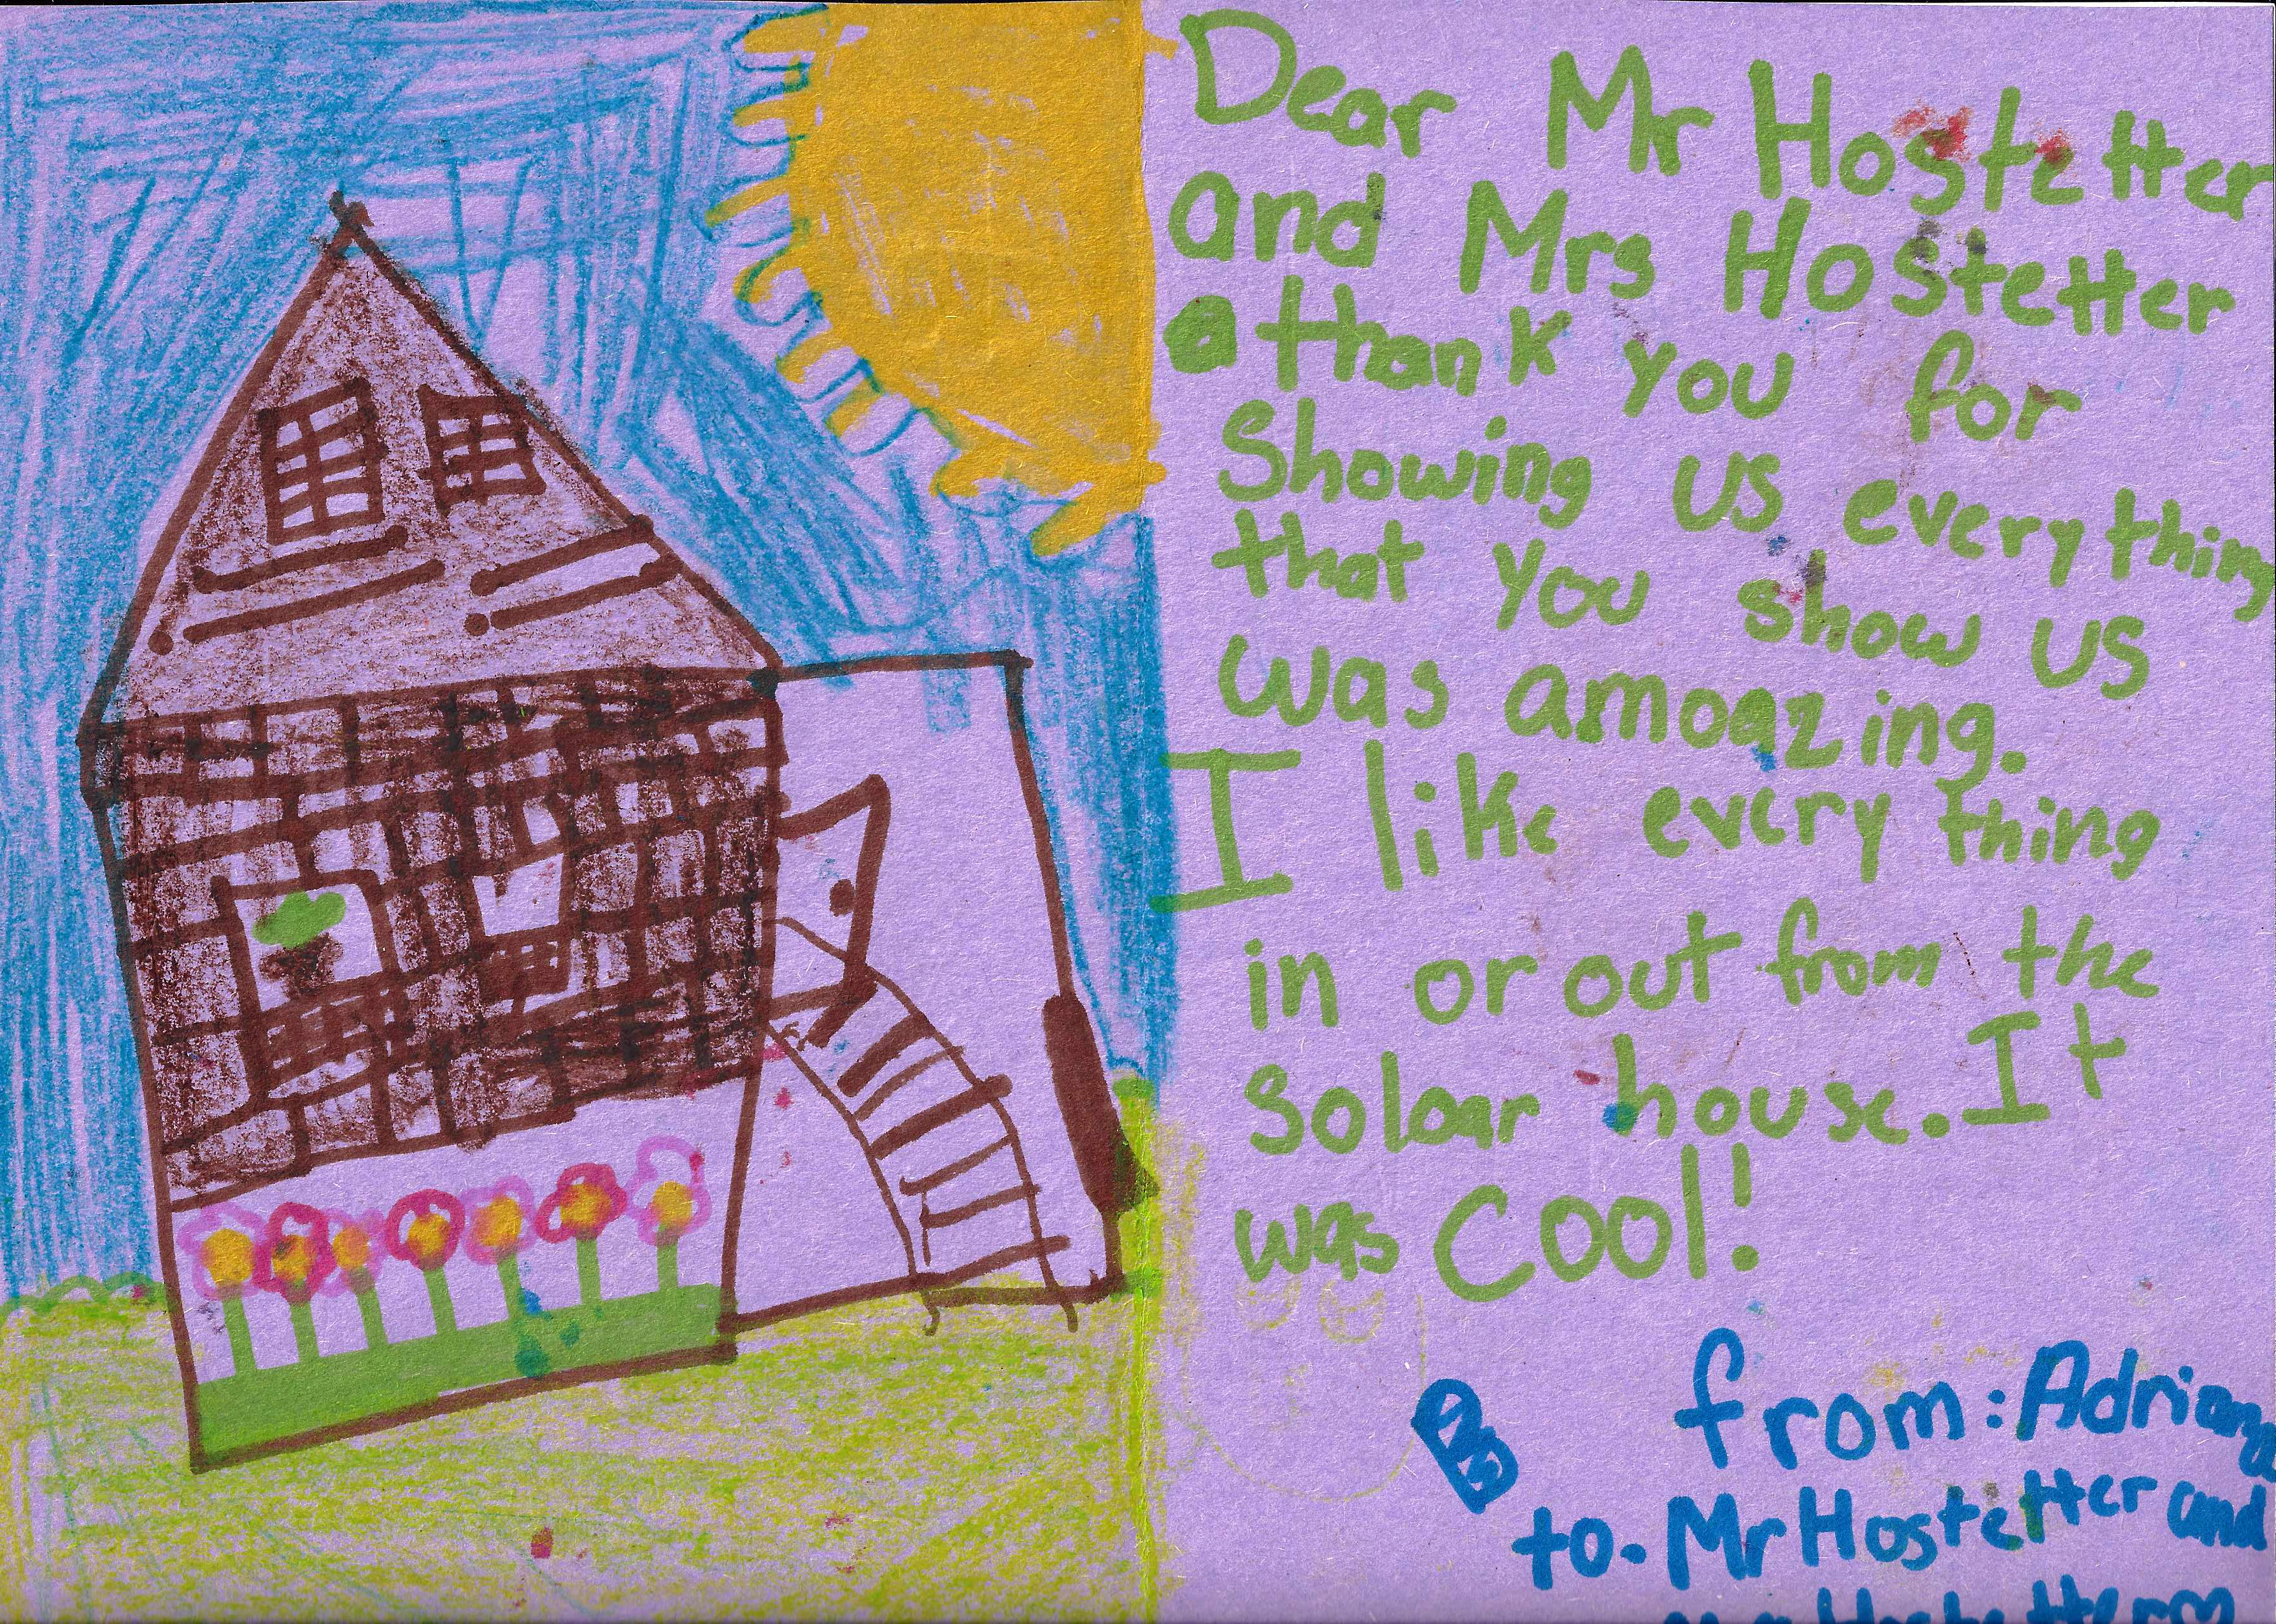 Dear Mr Hostetter
and Mrs Hostetter
thank you for
Showing us everything
that you show us
was amoazing.
I like every thing
in or out from the
Soloar house. It
was Cool!
from: Adriana
to. Mr Hostetter and
Hostetter